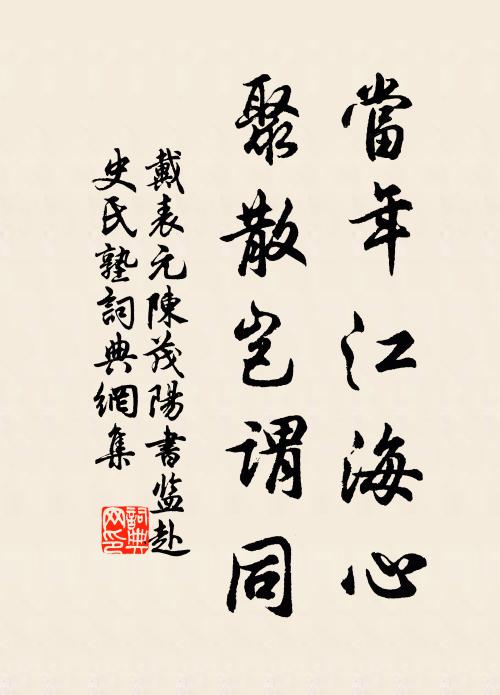 當年江海心
聚散豈謂同
戴表元陳茂陽書監赴
史氏塾詞典網集
詞典
网印